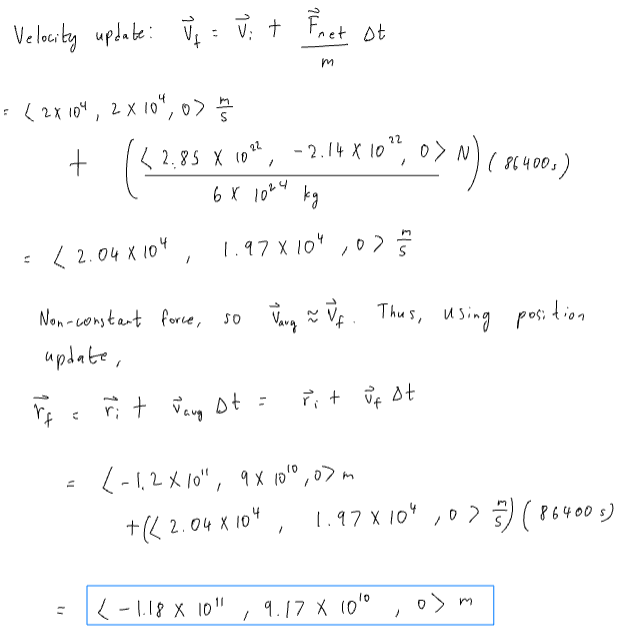 Velocity update: v⃗_f = v⃗_i + F⃗_net/m Δt
= ⟨ 2 x 10⁴, 2 x 10⁴, 0 ⟩ m/s
+ (⟨ 2.85 x 10²², -2.14 x 10²², 0 ⟩ N / 6 x 10²⁴ kg) (86400 s)
= ⟨ 2.04 x 10⁴, 1.97 x 10⁴, 0 ⟩ m/s
Non-constant force, so v⃗_avg ≈ v⃗_f. Thus, using position
update,
r⃗_f = r⃗_i + v⃗_avg Δt = r⃗_i + v⃗_f Δt
= ⟨ -1.2 x 10¹¹, 9 x 10¹⁰, 0 ⟩ m
+ (⟨ 2.04 x 10⁴, 1.97 x 10⁴, 0 ⟩ m/s) (86400 s)
= ⟨ -1.18 x 10¹¹, 9.17 x 10¹⁰, 0 ⟩ m